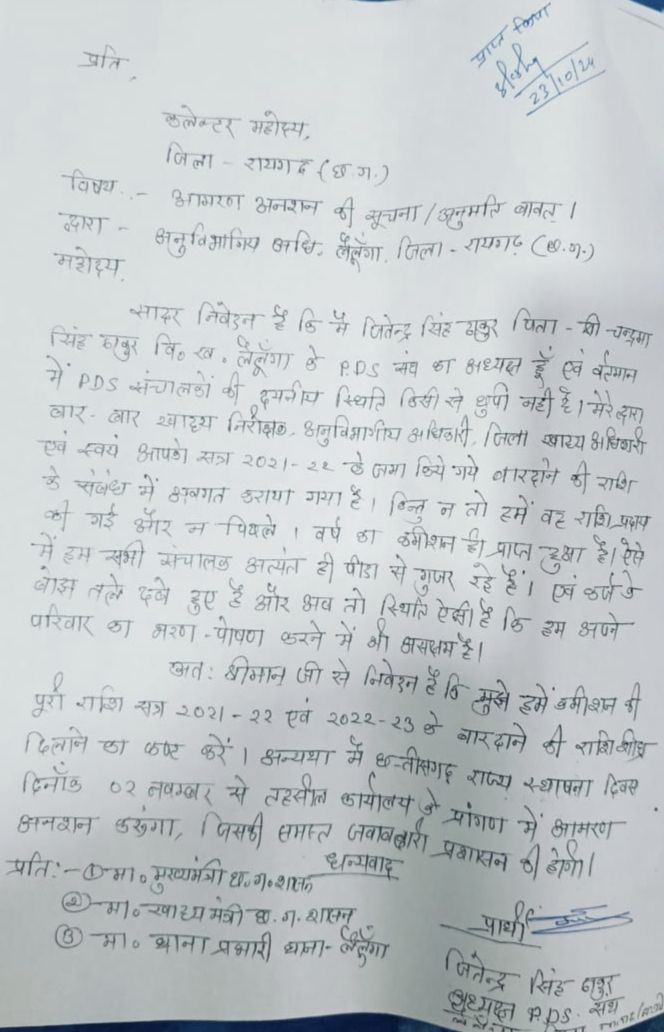 प्राप्त किया
23/10/24
प्रति,
कलेक्टर महोदय,
जिला - रायगढ (छ.ग.)
विषय :- आमरण अनशन की सूचना/अनुमति बावत् ।
द्वारा - अनुविभागिय अधि. लैलूँगा, जिला - रायगढ़ (छ.ग.)
महोदय,
सादर निवेदन है कि मैं जितेन्द्र सिंह ठाकुर पिता - श्री चन्द्रमा
सिंह ठाकुर वि० ख० लैलूँगा के P.D.S संघ का अध्यक्ष हूँ एवं वर्तमान
में P.D.S संचालकों की दयनीय स्थिति किसी से छुपी नही है। मेरे द्वारा
बार - बार खाद्य निरीक्षक, अनुविभागीय अधिकारी, जिला खाद्य अधिकारी
एवं स्वयं आपको सत्र 2021-22 के जमा किये गये बारदाने की राशि
के संबंध में अवगत कराया गया है। किन्तु न तो हमें वह राशि प्रदाय
की गई और न पिछले 1 वर्ष का कमीशन ही प्राप्त हुआ है। ऐसे
में हम सभी संचालक अत्यंत ही पीडा से गुजर रहे हैं। एवं कर्ज के
बोझ तले दबे हुए है और अब तो स्थिति ऐसी है कि हम अपने
परिवार का भरण - पोषण करने में भी असक्षम है।
अतः श्रीमान जी से निवेदन है कि मुझे हमें कमीशन की
पूरी राशि सत्र 2021-22 एवं 2022-23 के बारदाने की राशि शीघ्र
दिलाने का कष्ट करें। अन्यथा मैं छत्तीसगढ राज्य स्थापना दिवस
दिनाँक 02 नवम्बर से तहसील कार्यालय के प्रांगण में आमरण
अनशन करूंगा, जिसकी समस्त जवाबदारी प्रशासन की होगी।
धन्यवाद
प्रति:- ① मा० मुख्यमंत्री छ.ग. शासन
② मा० खाद्य मंत्री छ.ग. शासन
③ मा० थाना प्रभारी थाना - लैलूँगा
प्रार्थी
जितेन्द्र सिंह ठाकुर
अध्यक्ष P.D.S. संघ